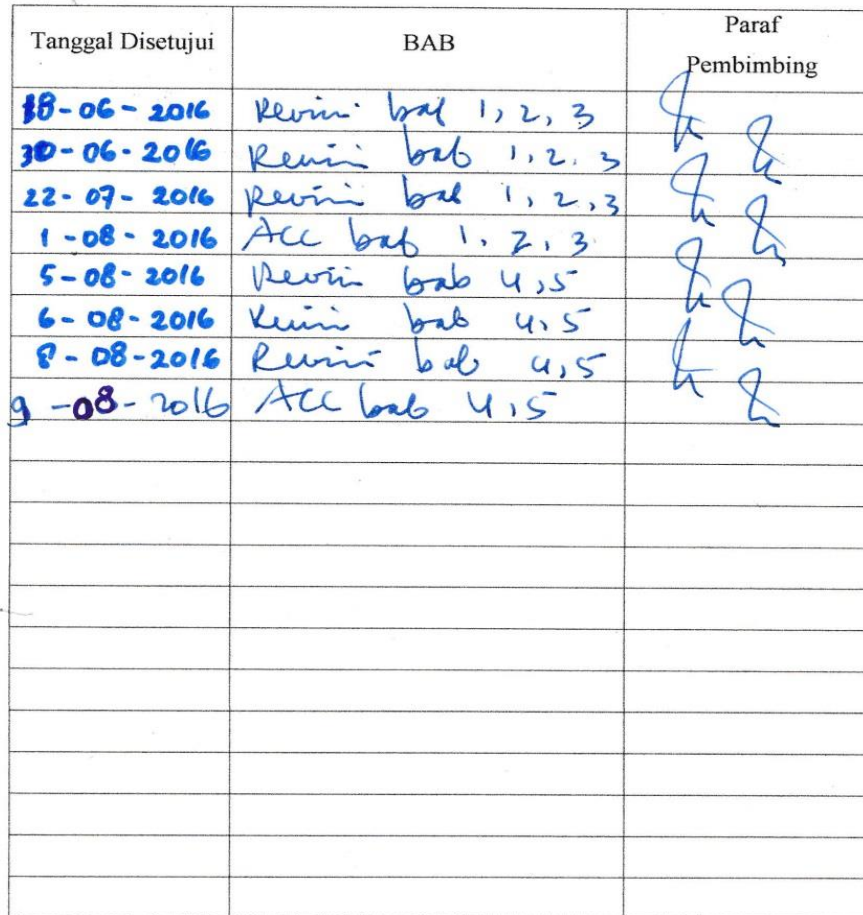 Tanggal Disetujui BAB Paraf
Pembimbing
18-06-2016 Revisi bab 1, 2, 3
30-06-2016 Revisi bab 1, 2, 3
22-07-2016 Revisi bab 1, 2, 3
1-08-2016 ACC bab 1, 2, 3
5-08-2016 Revisi bab 4,5
6-08-2016 Revisi bab 4,5
8-08-2016 Revisi bab 4,5
9-08-2016 ACC bab 4,5